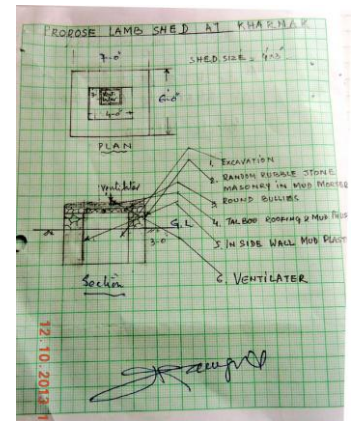 PROPOSE LAMB SHED AT KHARNAK
7-0"
SHED SIZE = 4'x3'
6-0"
4-0"
PLAN
1. EXCAVATION
2. RANDOM RUBBLE STONE
MASONRY IN MUD MORTER
3 ROUND BULLIES
4. TALBOO ROOFING & MUD
5. IN SIDE WALL MUD PLAST
6. VENTILATER
Ventilater
G.L
3-0
Section
12.10.2013